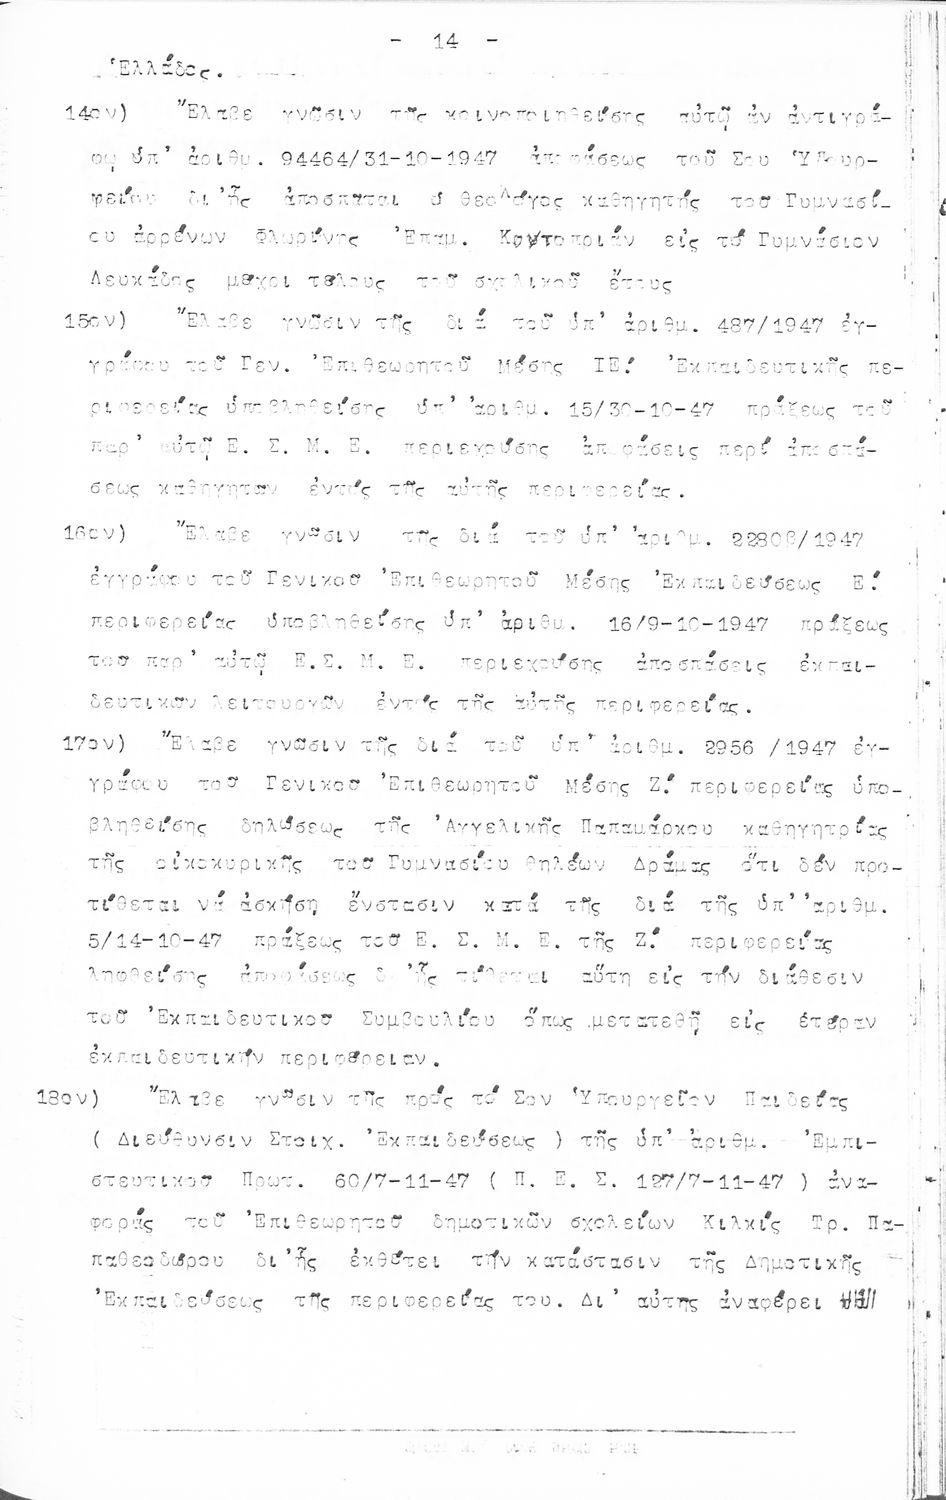 - 14 -
Ἑλλάδος.
14ον) Ἔλαβε γνῶσιν τῆς κοινοποιηθείσης αὐτῷ ἐν ἀντιγρά-
φῳ ὑπ' ἀριθμ. 94464/31-10-1947 ἀποφάσεως τοῦ Σου Ὑπουρ-
γείου δι' ἧς ἀποσπᾶται ὁ θεολόγος καθηγητής τοῦ Γυμνασί-
ου ἀρρένων Φλωρίνης Ἐπαμ. εἰς τό Γυμνάσιον
Λευκάδος μέχρι τέλους τοῦ σχολικοῦ ἔτους
15ον) Ἔλαβε γνῶσιν τῆς διά τοῦ ὑπ' ἀριθμ. 487/1947 ἐγ-
γράφου τοῦ Γεν. Ἐπιθεωρητοῦ Μέσης ΙΕ! Ἐκπαιδευτικῆς πε-
ριφερείας ὑποβληθείσης ὑπ' ἀριθμ. 15/30-10-47 πράξεως τοῦ
παρ' αὐτῷ Ε. Σ. Μ. Ε. περιεχούσης ἀποφάσεις περί ἀποσπά-
σεως καθηγητῶν ἐντός τῆς αὐτῆς περιφερείας.
16ον) Ἔλαβε γνῶσιν τῆς διά τοῦ ὑπ' ἀριθμ. /1947
ἐγγράφου τοῦ Γενικοῦ Ἐπιθεωρητοῦ Μέσης Ἐκπαιδεύσεως Ε!
περιφερείας ὑποβληθείσης ὑπ' ἀριθμ. 16/9-10-1947 πράξεως
τοῦ παρ' αὐτῷ Ε.Σ. Μ. Ε. περιεχούσης ἀποσπάσεις ἐκπαι-
δευτικῶν λειτουργῶν ἐντός τῆς αὐτῆς περιφερείας.
17ον) Ἔλαβε γνῶσιν τῆς διά τοῦ ὑπ' ἀριθμ. 2956 /1947 ἐγ-
γράφου τοῦ Γενικοῦ Ἐπιθεωρητοῦ Μέσης Ζ! περιφερείας ὑπο-
βληθείσης δηλώσεως τῆς Ἀγγελικῆς Παπαμάρκου καθηγητρίας
τῆς οἰκοκυρικῆς τοῦ Γυμνασίου θηλέων Δράμας ὅτι δέν προ-
τίθεται νά ἀσκήσῃ ἔνστασιν κατά τῆς διά τῆς ὑπ' ἀριθμ.
5/14-10-47 πράξεως τοῦ Ε. Σ. Μ. Ε. τῆς Ζ! περιφερείας
ληφθείσης ἀποφάσεως δι' ἧς τίθεται αὕτη εἰς τήν διάθεσιν
τοῦ Ἐκπαιδευτικοῦ Συμβουλίου ὅπως μετατεθῇ εἰς ἑτέραν
ἐκπαιδευτικήν περιφέρειαν.
18ον) Ἔλαβε γνῶσιν τῆς πρός τό Σον Ὑπουργεῖον Παιδείας
( Διεύθυνσιν Στοιχ. Ἐκπαιδεύσεως ) τῆς ὑπ' ἀριθμ. Ἐμπι-
στευτικοῦ Πρωτ. 60/7-11-47 ( Π. Ε. Σ. 127/7-11-47 ) ἀνα-
φορᾶς τοῦ Ἐπιθεωρητοῦ δημοτικῶν σχολείων Κιλκίς Τρ. Πα-
παθεοδώρου δι' ἧς ἐκθέτει τήν κατάστασιν τῆς Δημοτικῆς
Ἐκπαιδεύσεως τῆς περιφερείας του. Δι' αὐτῆς ἀναφέρει